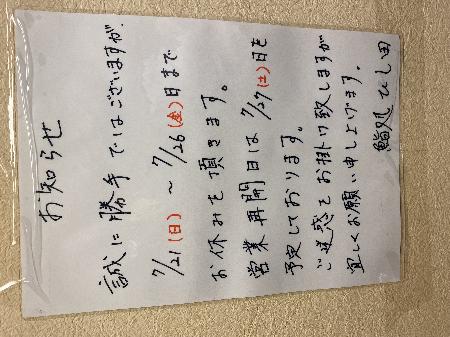 お知らせ
誠に勝手ではございますが、
7/21(日)～7/26(金)日まで
お休みを頂きます。
営業再開日は7/27(土)日を
予定しております。
ご迷惑をお掛け致しますが
宜しくお願い申し上げます。
鮨処ひし田